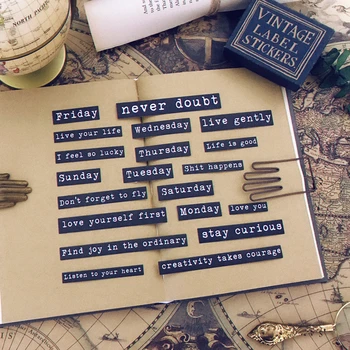 NORTH PACIFIC
VINTAGE
LABEL
STICKERS
Friday
never doubt
live your life
Wednesday
live gently
I feel so lucky
Thursday
Life is good
Sunday
Tuesday
Shit happens
Don't forget to fly
Saturday
love yourself first
Monday
love you
Find joy in the ordinary
stay curious
Listen to your heart
creativity takes courage